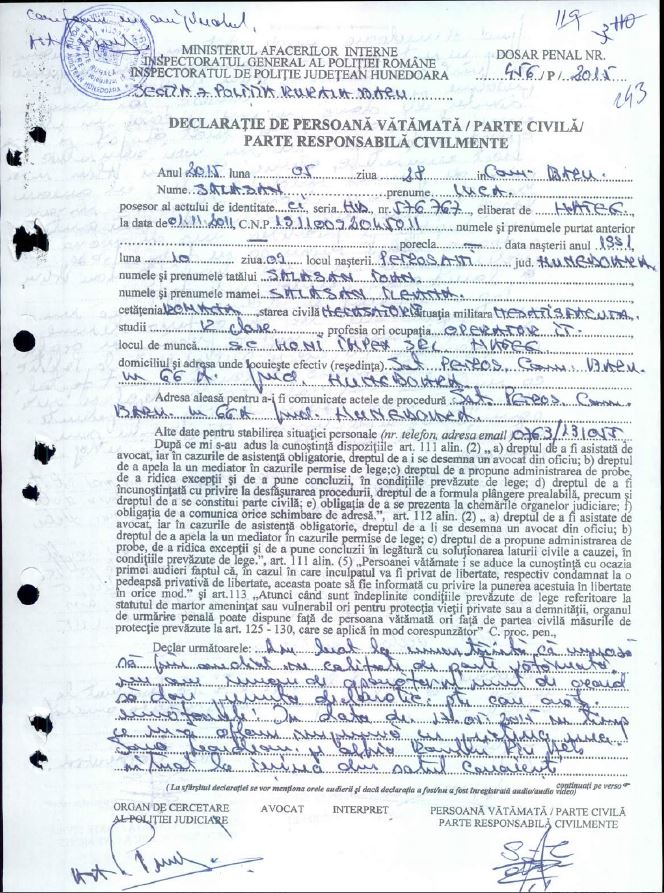 Conform cu originalul,
119
110
MINISTERUL AFACERILOR INTERNE
DOSAR PENAL NR.
INSPECTORATUL GENERAL AL POLIȚIEI ROMÂNE
456 / P / 2015
INSPECTORATUL DE POLIȚIE JUDEȚEAN HUNEDOARA
SECȚIA 7 POLIȚIA RURALĂ BARU
243
DECLARAȚIE DE PERSOANĂ VĂTĂMATĂ / PARTE CIVILĂ/
PARTE RESPONSABILĂ CIVILMENTE
Anul 2015 luna 05 ziua 28 în Com. BARU.
Nume SALASAN prenume LUCA.
posesor al actului de identitate CI seria HD, nr. 576767, eliberat de HATEG
la data de 01.11.2011, C.N.P. numele și prenumele purtat anterior
— porecla — data nașterii anul 1991,
luna 10 ziua 09 locul nașterii PETROSANI jud. HUNEDOARA
numele și prenumele tatălui SALASAN IOAN.
numele și prenumele mamei SALASAN ILEANA.
cetățenia ROMANA, starea civilă NECASATORIT situația militară NESATISFACUTA,
studii 12 clase, profesia ori ocupația OPERATOR IT.
locul de muncă SC HONI IMPEX SRL HATEG
domiciliul și adresa unde locuiește efectiv (reședința) Sat. PETROS, Com. BARU.
nr 66 A. jud. HUNEDOARA.
Adresa aleasă pentru a-i fi comunicate actele de procedură Sat PETROS, Com.
BARU. nr 66A jud. HUNEDOARA.
Alte date pentru stabilirea situației personale (nr. telefon, adresa email) 0763/191055
După ce mi s-au adus la cunoștință dispozițiile art. 111 alin. (2) „ a) dreptul de a fi asistată de
avocat, iar în cazurile de asistență obligatorie, dreptul de a i se desemna un avocat din oficiu; b) dreptul
de a apela la un mediator în cazurile permise de lege;c) dreptul de a propune administrarea de probe,
de a ridica excepții și de a pune concluzii, în condițiile prevăzute de lege; d) dreptul de a fi
încunoștințată cu privire la desfășurarea procedurii, dreptul de a formula plângere prealabilă, precum și
dreptul de a se constitui parte civilă; e) obligația de a se prezenta la chemările organelor judiciare; f)
obligația de a comunica orice schimbare de adresă.”, art. 112 alin. (2) „ a) dreptul de a fi asistate de
avocat, iar în cazurile de asistență obligatorie, dreptul de a li se desemna un avocat din oficiu; b)
dreptul de a apela la un mediator în cazurile permise de lege; c) dreptul de a propune administrarea de
probe, de a ridica excepții și de a pune concluzii în legătură cu soluționarea laturii civile a cauzei, în
condițiile prevăzute de lege.”, art. 111 alin. (5) „Persoanei vătămate i se aduce la cunoștință cu ocazia
primei audieri faptul că, în cazul în care inculpatul va fi privat de libertate, respectiv condamnat la o
pedeapsă privativă de libertate, aceasta poate să fie informată cu privire la punerea acestuia în libertate
în orice mod.” și art.113 „Atunci când sunt îndeplinite condițiile prevăzute de lege referitoare la
statutul de martor amenințat sau vulnerabil ori pentru protecția vieții private sau a demnității, organul
de urmărire penală poate dispune față de persoana vătămată ori față de partea civilă măsurile de
protecție prevăzute la art. 125 - 130, care se aplică în mod corespunzător” C. proc. pen.,
Declar următoarele: Am luat la cunoștință că urmează
să fiu audiat în calitate de parte vătămată
nu am nevoie de apărător sunt de acord
să dau prezenta declarație.
următoarele: În data de 17.05.2015 în timp
ce m-a aflam împreună cu prietena mea
din satul
continuați pe verso
( La sfârșitul declarației se vor menționa orele audierii și dacă declarația a fost/nu a fost înregistrată audio/audio video)
ORGAN DE CERCETARE AVOCAT INTERPRET PERSOANĂ VĂTĂMATĂ / PARTE CIVILĂ
AL POLIȚIEI JUDICIARE PARTE RESPONSABILĂ CIVILMENTE